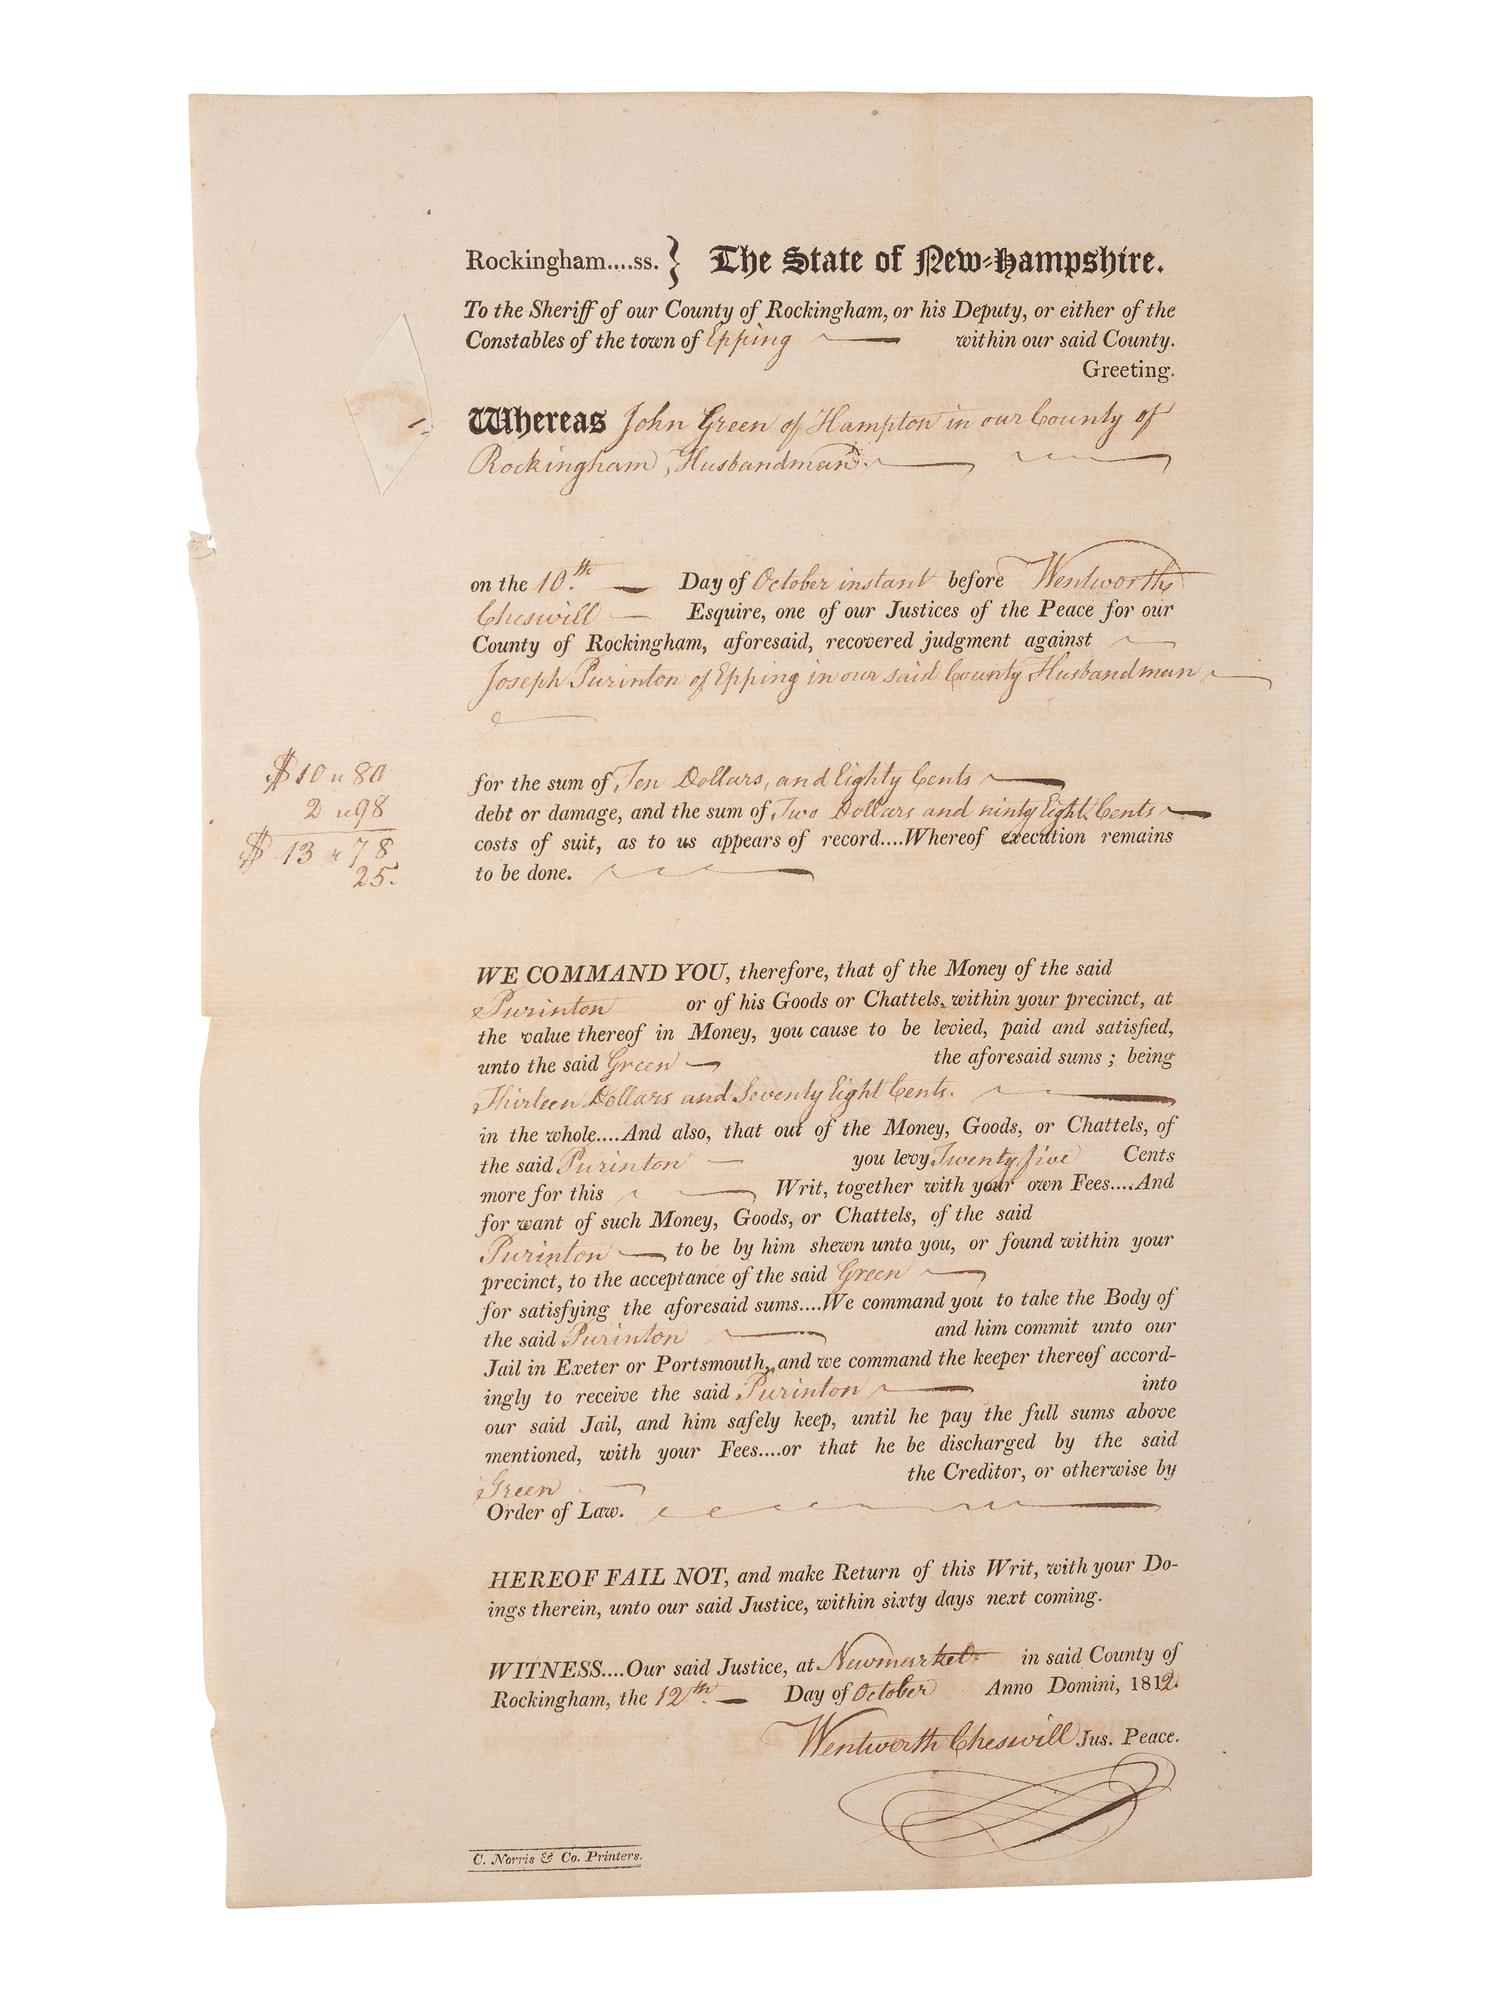 Rockingham....ss. } The State of New-Hampshire.
To the Sheriff of our County of Rockingham, or his Deputy, or either of the
Constables of the town of Epping within our said County.
Greeting.
Whereas John Green of Hampton in our County of
Rockingham, Husbandman.
on the 10.th Day of October instant before Wentworth
Cheswill Esquire, one of our Justices of the Peace for our
County of Rockingham, aforesaid, recovered judgment against
Joseph Purinton of Epping in our said County Husbandman
$10 " 80
2 " 98
$ 13 " 78
25.
for the sum of Ten Dollars, and Eighty Cents
debt or damage, and the sum of Two Dollars and ninty Eight Cents
costs of suit, as to us appears of record....Whereof execution remains
to be done.
WE COMMAND YOU, therefore, that of the Money of the said
Purinton or of his Goods or Chattels, within your precinct, at
the value thereof in Money, you cause to be levied, paid and satisfied,
unto the said Green the aforesaid sums ; being
Thirteen Dollars and Seventy Eight Cents.
in the whole....And also, that out of the Money, Goods, or Chattels, of
the said Purinton you levy Twenty five Cents
more for this Writ, together with your own Fees....And
for want of such Money, Goods, or Chattels, of the said
Purinton to be by him shewn unto you, or found within your
precinct, to the acceptance of the said Green
for satisfying the aforesaid sums....We command you to take the Body of
the said Purinton and him commit unto our
Jail in Exeter or Portsmouth, and we command the keeper thereof accord-
ingly to receive the said Purinton into
our said Jail, and him safely keep, until he pay the full sums above
mentioned, with your Fees....or that he be discharged by the said
Green the Creditor, or otherwise by
Order of Law.
HEREOF FAIL NOT, and make Return of this Writ, with your Do-
ings therein, unto our said Justice, within sixty days next coming.
WITNESS....Our said Justice, at Newmarket in said County of
Rockingham, the 12th. Day of October Anno Domini, 1812.
Wentworth Cheswill Jus. Peace.
C. Norris & Co. Printers.